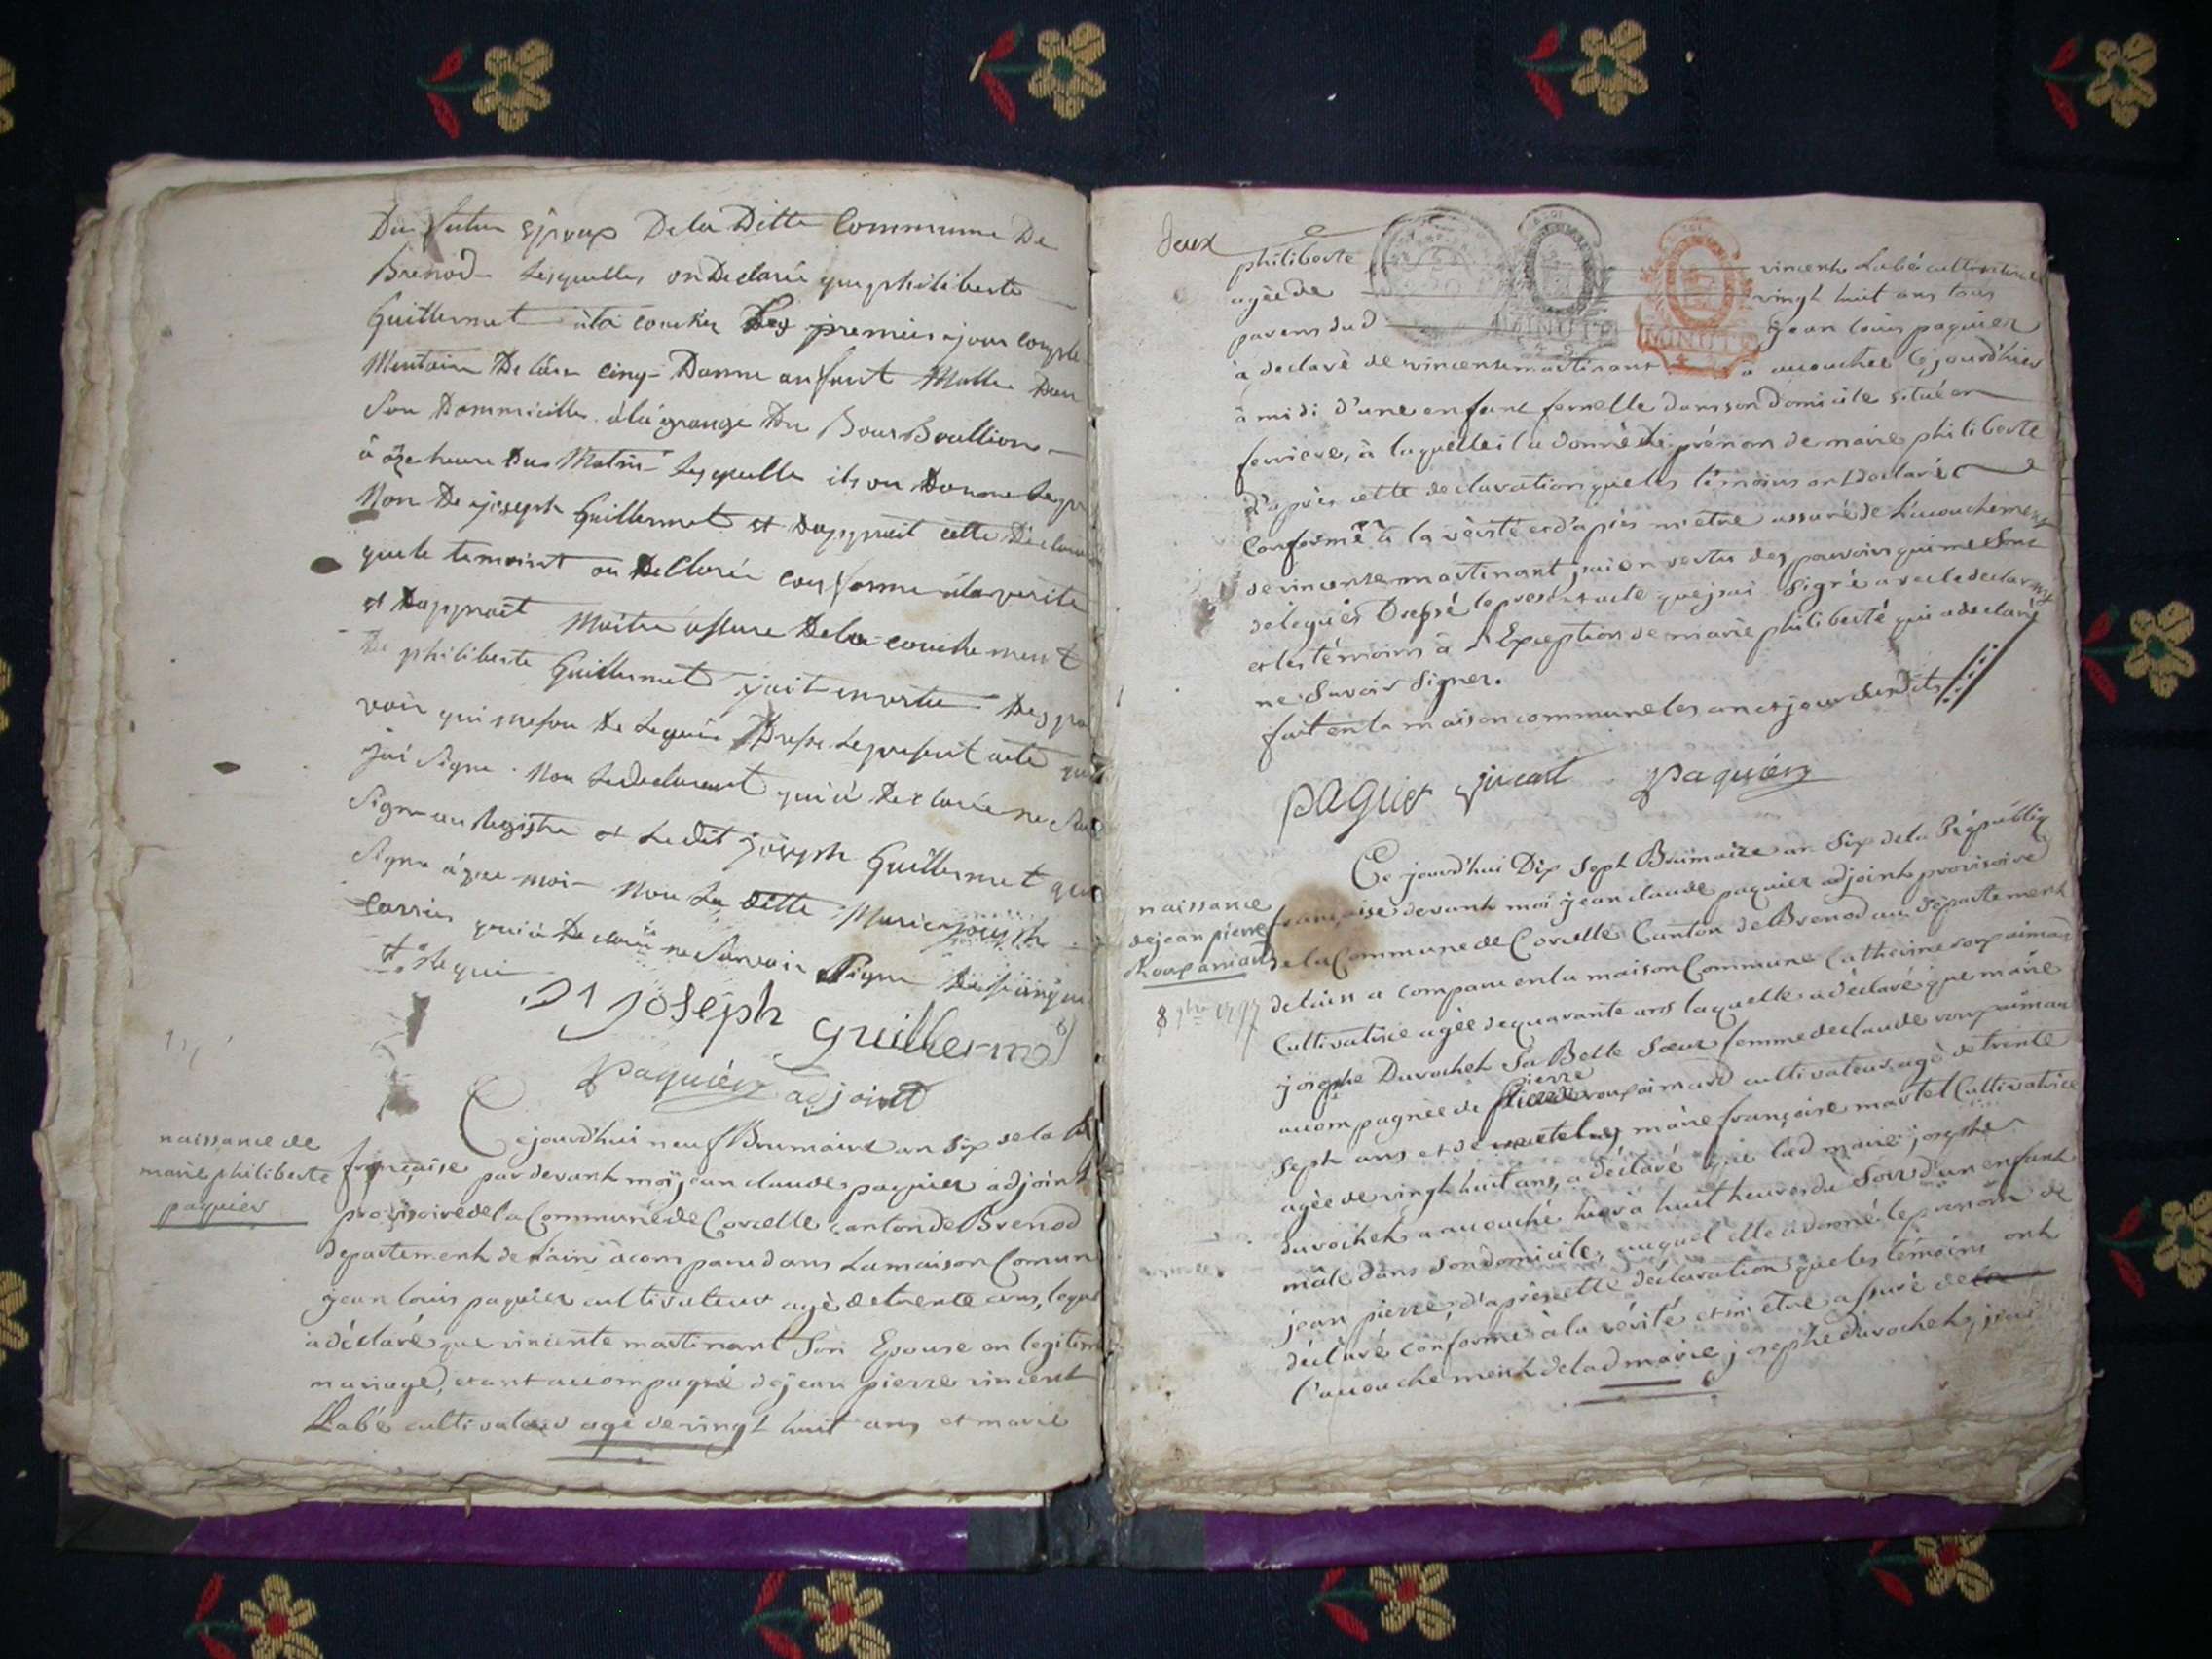 Du futur Epoux De la Ditte Commune De
Brenod Lesquelles on Declarée que philiberte
Guillermet à la coucher Les premier jour comple
Mentaire De l'ère cinq Donne anfant Malle Dan
Son Dommicille à la grange Du Bour Boullion
à oze heure Du Matin Lesquelle ils on Donne Le pr
Nôn De joseph Guillermet et Dapprait cette Déclara
que le temoint on Declarée conforme à la verite
et Dapprait Maitre assure De la couchement
De philiberte Guillermet jait en vertu Des pou
voir qui me son De Leguée Dresse Le present acte que
jai Signe Non Le declarent qui à Declarée ne Sav
Signe au Registre et Ledit joseph Guillermet qui
Signe àque moi Non La ditte Marie joseph
Carrier qui à Declarée ne Savoir Signe De
joseph guillermet
paquier adjoint
naissance de
marie philiberte
paquier
Cejourd'hui neuf Brumaire an Six de la R
française par devant moi jean claude paquier adjoint
provisoire de la Commune de Corcelle canton de Brenod
departement de L'ain à comparu dans La maison Comun
jean louis paquier cultivateur agé de trente ans, leque
à déclaré que vincente martinant Son Epouse en legitim
mariage, etant accompagné de jean pierre vincent
Labé cultivateur agé de vingt huit ans et marie
deux
philiberte vincent Labé cultivatrice
agée de vingt huit ans tous
parens dud jean louis paquier
à declaré de vincente martinant a accouchée Cejourd'hier
à midi d'une enfant femelle dans son domicile situé en
ferriere, à laquelle il a donné le prénom de marie philiberte
d'après cette declaration que les témoins ont déclaré
Conforme à la vérité et d'après m'etre assuré de L'accouchement
de vincente martinant j'ai en vertu des pouvoirs qui me Sont
delegués Dressé le present acte que j'ai Signé avec le declarant
et les témoins à L'Exception de marie philiberte qui a declaré
ne Savoir Signer.
fait en la maison commune les an et jour Susdits
paquier vincent paquier
naissance
de jean pierre
Rouparimard
8 9bre 1797
Ce jourd'hui Dix Sept Brumaire an Six de la Républiq
française devant moi jean claude paquier adjoint provisoire
de la Commune de Corcelle Canton de Brenod au Departement
de l'ain a comparu en la maison Commune Catherine
Cultivatrice agée de quarante ans laquelle a déclaré que marie
josephe Durochet Sa Belle Sœur femme de claude
accompagnée de pierre cultivateur agé de trente
Sept ans et de marie françoise martel Cultivatrice
agée de vingt huit ans, a déclaré que lad marie josephe
durochet a accouché hier à huit heures du Soir d'un enfant
mâle dans Son domicile, auquel elle a donné le prenom de
jean pierre, d'après cette déclaration que les témoins ont
déclaré conforme à la vérité et m'être assuré de
l'accouchement de lad marie josephe durochet, j'ai